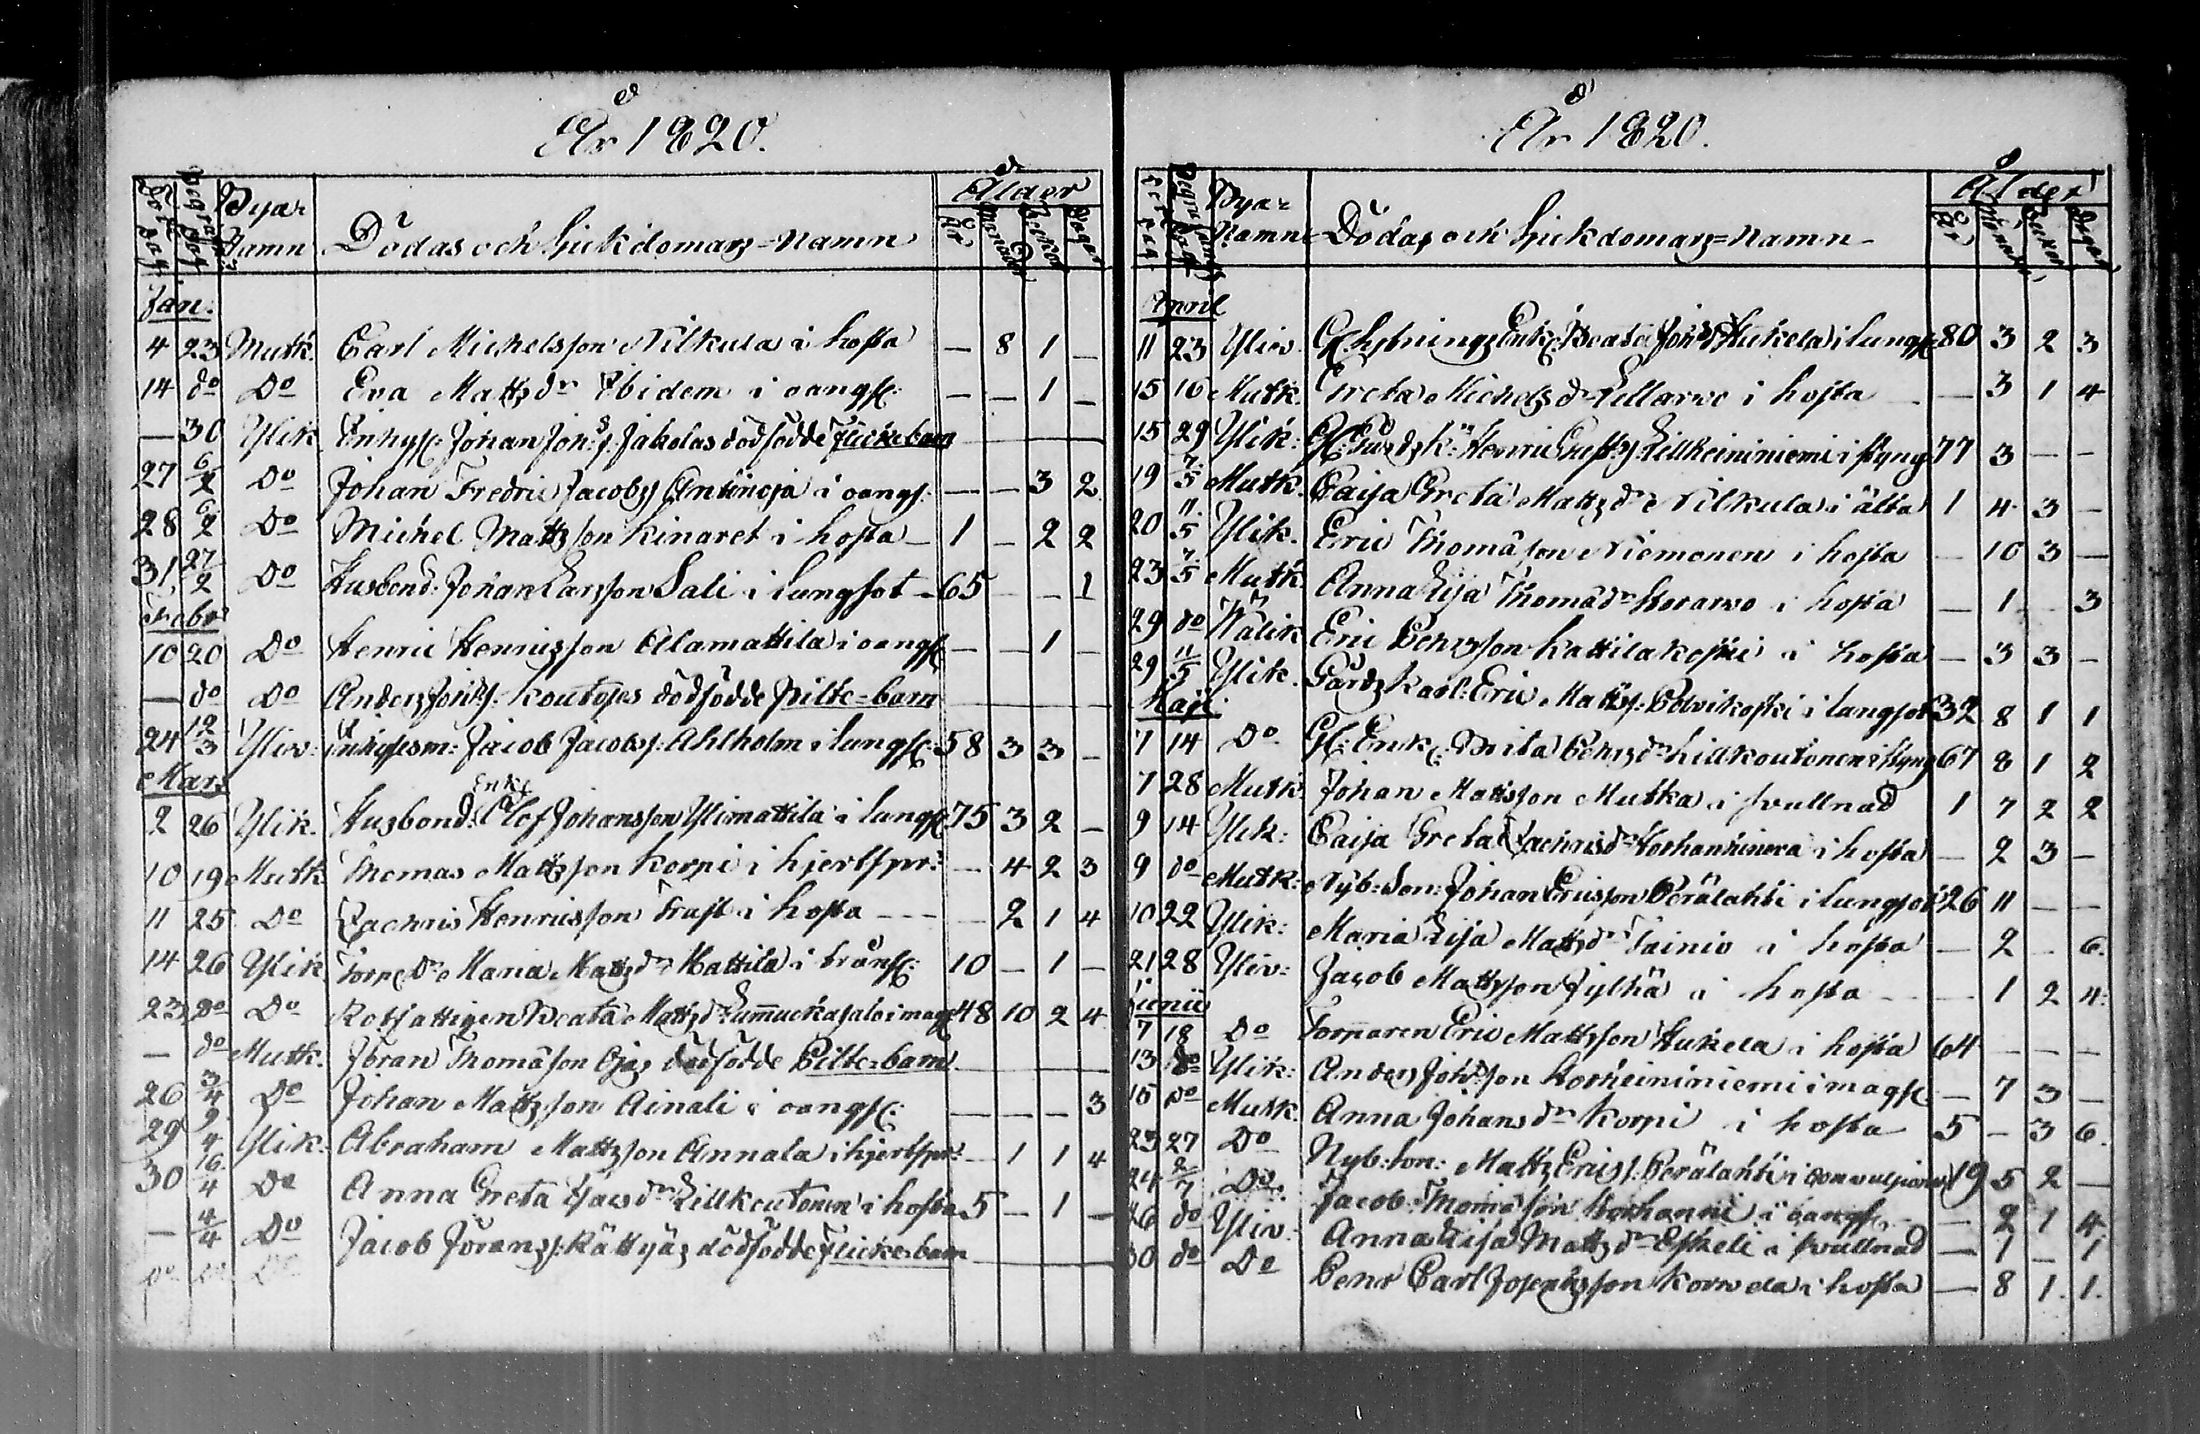 År 1820.
Död dag Begrafn: dag Byar Namn Dödas och Siukdomars=Namn Ålder År Månader Veckor Dagar
Jan:
4 23 Mutk. Carl Michelsson Nilkula i hosta — 8 1 —
14 do Do Eva Mattsdr Ibidem i oangs: — — 1 —
— 30 Ylik. Inhys: Johan Johs: Jakolas dödfödde Flickebarn
27 6/2 Do Johan Fredric Jacobs Antinoja i oangs: — — 3 2
28 6/2 Do Michel Mattsson Kinaret i hosta — 1 — 2 2
31 27/2 Do Husbond: Johan Larsson Sali i lungsot — 65 — — 1
Febr
10 20 Do Henric Henricsson Alamattila i oangs: — — 1 —
— do Do Anders Johs: Koutojas dödfödde Pilte=barn
24 12/3 Yliv: Inhysesm: Jacob Jacobs: Ahlholm i lungs: 58 3 3 —
Mars
Enkl:
2 26 Ylik. Husbond: Olof Johansson Ylimattila i lungs: 75 3 2 —
10 19 Mutk Thomas Mattsson Korpi i hjertspr: — 4 2 3
11 25 Do Zachris Henricsson Frast i hosta — — 2 1 4
14 26 Ylik Torp: Dr Maria Mattsdr Mattila i bråns: 10 — 1 —
23 do Do Rotfattigen Beata Mattsdr i mags 48 10 2 4
— do Mutk. Jöran Thomasson Ojas dödfödde Pilte=barn
26 3/4 Do Johan Mattsson Ainali i oangs: — — — 3
29 9/4 Ylik: Abraham Mattsson Annala i hjertspr: — 1 1 4
30 16/4 Do Anna Greta Isacsdr Lillkoutonen i hosta 5 — 1 —
— 4/4 Do Jacob Jörans: Rättyäs dödfödde Flicke-barn
Do Do Do
År 1820.
Död dag Begrafnings dag Byar Namn Dödas och Siukdomars=Namn Ålder År Månader Veckor Dagar
April
11 23 Yliv. Beata Johsdr Hukela i lungs: 80 3 2 3
15 16 Mutk. Greta Michelsdr i hosta — 3 1 4
15 29 Ylik: Henric Lillheininiemi i styng 77 3 — —
19 7/5 Mutk. Caisa Greta Mattsdr Nilkula i älta 1 4 3 —
20 11/5 Ylik. Eric Thomasson Niemonen i hosta — 10 3 —
23 7/5 Mutk. Anna Lisa Thomasdr i hosta — 1 — 3
29 do Wälik Eric Kattilakoski i hosta — 3 3 —
29 11/5 Ylik. Gårds Karl: Eric Matts: i lungsot 32 8 1 1
Maji
7 14 Do Gl: Enk: Brita Lillkoutonen i styng 67 8 1 2
7 28 Mutk: Johan Mattsson Mutka i svullnad 1 7 2 2
9 14 Ylik: Caisa Greta Zachrisdr i hosta — 2 3 —
9 do Mutk: Nyb: Son: Johan Ericsson Perälahti i lungsot 26 11 — —
10 22 Ylik: Maria Lisa Mattsdr Tainio i hosta — 2 — 6.
21 28 Yliv: Jacob Mattsson Jylhä i hosta — 1 2 4.
Junii
7 18 Do Torparen Eric Mattsson Hukela i hosta 64 — — —
13 do Ylik: Anders Johsson Korheininiemi i mags: — 7 3 —
15 do Mutk. Anna Johansdr Korpi i hosta 5 — 3 6.
23 27 Do Nyb: Son: Matts Erics: Perälahti i convulsioner 19 5 2 —
24 2/7 Do Jacob Thomasson Korhanni i oangs: — 2 1 4
26 do Yliv: Anna Lisa Mattsdr Eskeli i svullnad — 1 — 1
30 do Do Carl Josephsson i hosta — 8 1. 1.